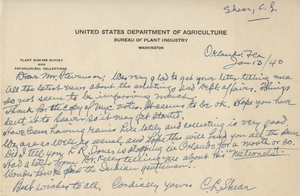 Shear, C. L.
UNITED STATES DEPARTMENT OF AGRICULTURE
BUREAU OF PLANT INDUSTRY
WASHINGTON
PLANT DISEASE SURVEY
AND
MYCOLOGICAL COLLECTIONS
Orlando, Fla
Jan 13/40
Dear Mr. Stevenson: Very glad to get your letter telling me
all the latest news about the building and Dept affairs. Things
do not seem to be improving
Thanks for the copy of ms. notes. It seems to be ok. Hope you have
sent it to so it may get started.
Have been having rains here lately and collecting is very good.
We are as well as usual, and hope this will find you all the same
Did tell you L. R. Jones is stopping in Orlando for a month or so.
Had a letter from Dr. telling me about his "Nationalist"
the gentleman.
Best wishes to all. Cordially yours C. L. Shear